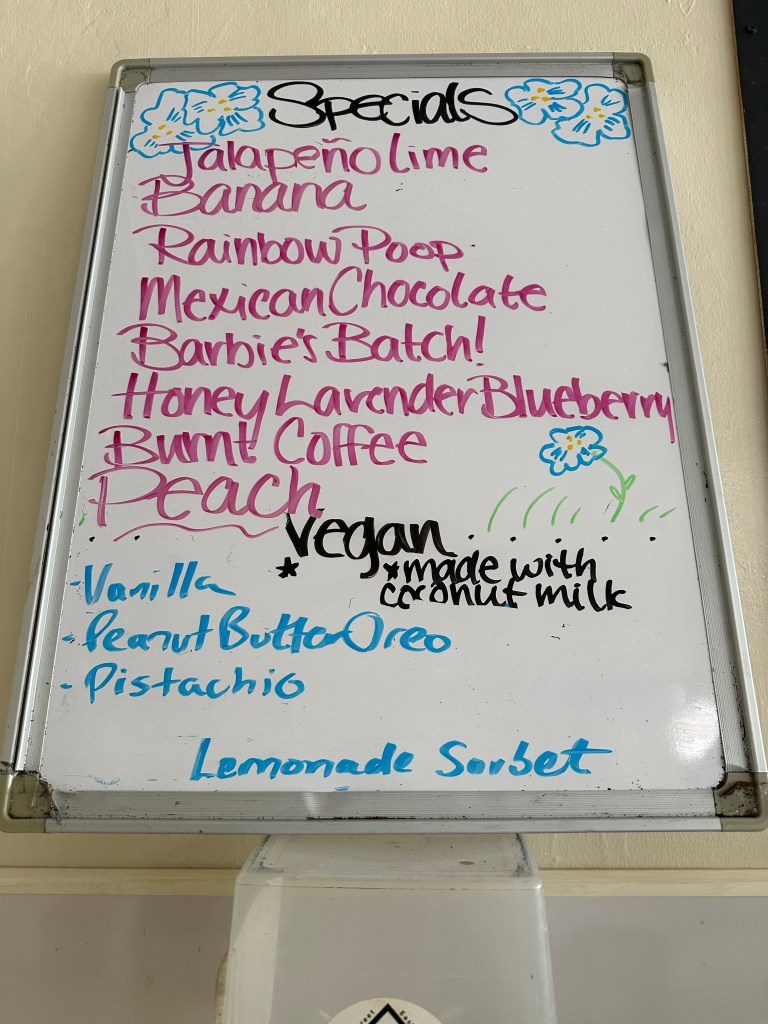 Specials
Jalapeño Lime
Banana
Rainbow Poop
Mexican Chocolate
Barbie's Batch!
Honey Lavender Blueberry
Burnt Coffee
Peach
vegan
* *made with
coconut milk
-Vanilla
-Peanut Butter Oreo
-Pistachio
Lemonade Sorbet